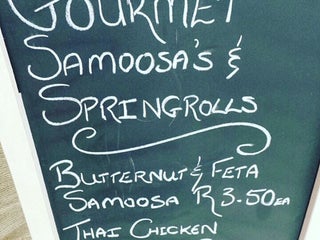 GOURMET
SAMOOSA'S &
SPRINGROLLS
BUTTERNUT & FETA
SAMOOSA R3.50EA
THAI CHICKEN